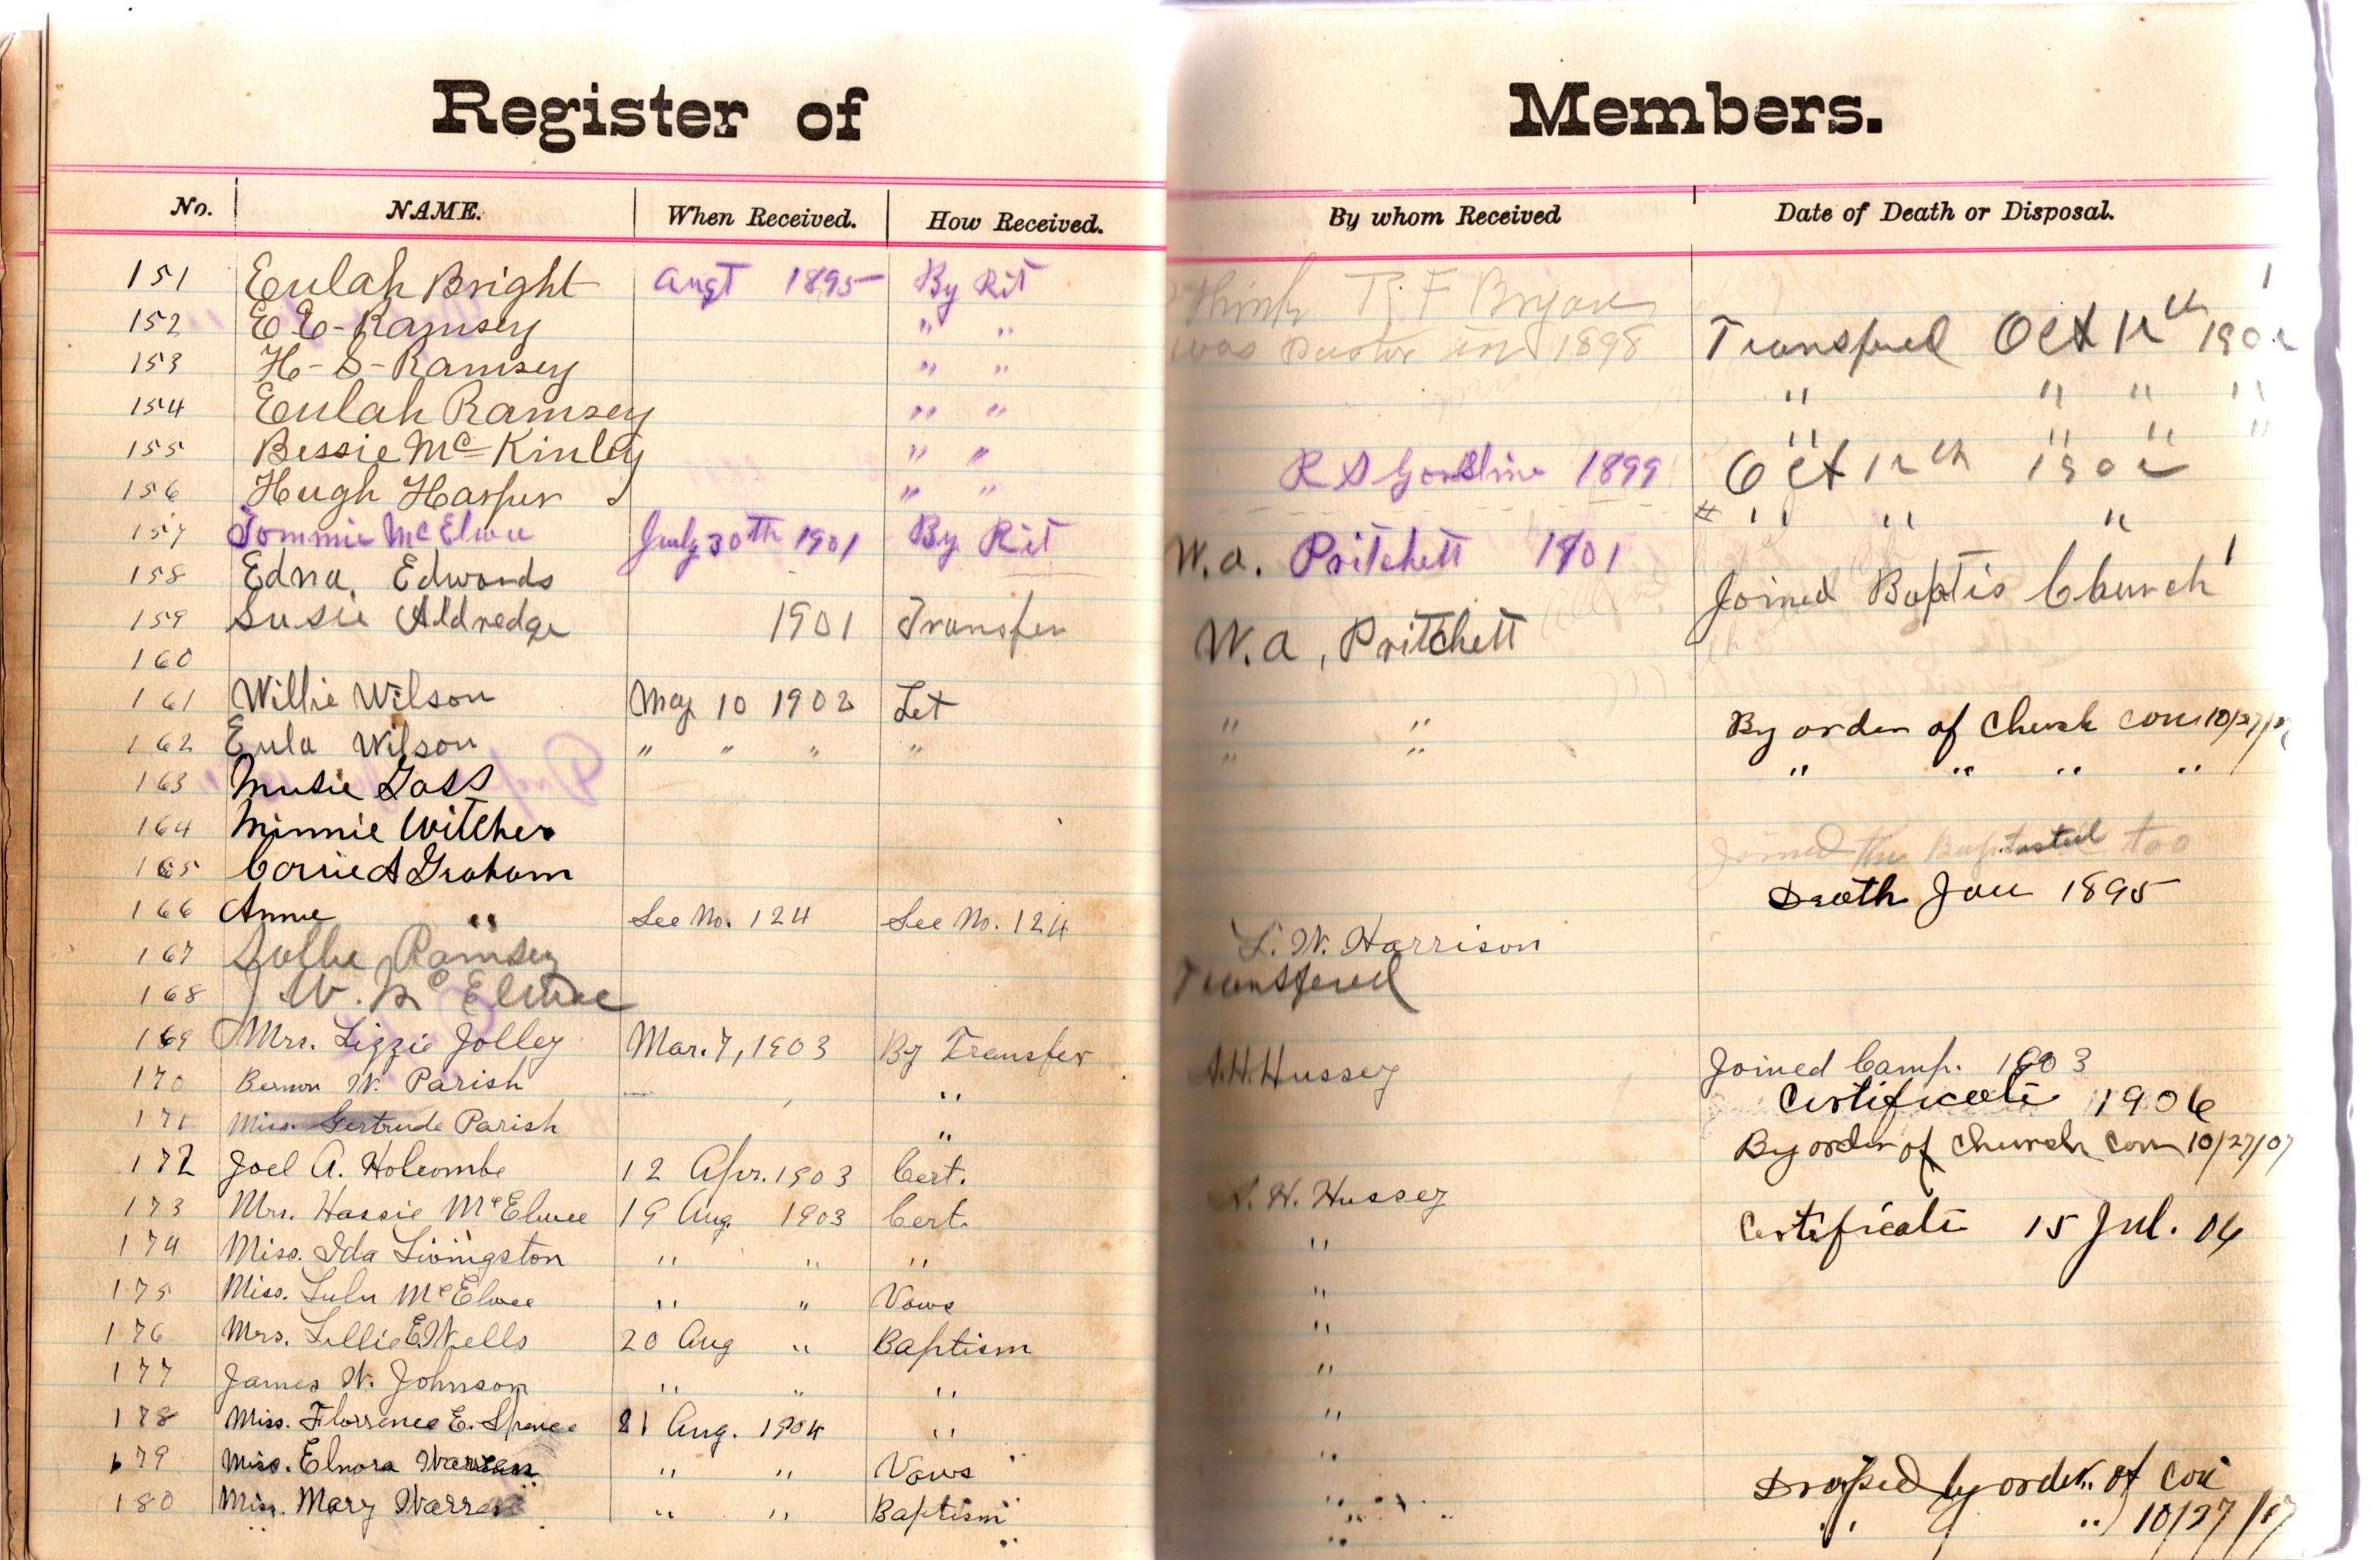 Register of Members.
No. NAME. When Received. How Received. By whom Received Date of Death or Disposal.
151 Eulah Bright Augt 1895 By Rit think R F Bryan
152 E E - Ramsey " " was Pastor in 1898 Transfered Oct 12th 1902
153 H - S - Ramsey " " " " " "
154 Eulah Ramsey " " " " " "
155 Bessie Mc Kinley " " R S Gorsline 1899 Oct 12th 1902
156 Hugh Harper " " " " "
157 Tommie McElwee July 30th 1901 By Rit W.A. Pritchett 1901
158 Edna Edwards Joined Baptis Church
159 Susie Aldredge 1901 Transfer W.A, Pritchett
160
161 Willie Wilson May 10 1902 Let " " By order of Church Con 10/27/07
162 Eula Wilson " " " " " " " " " "
163 Musie Gass
164 Minnie Witcher Joined the Baptist too
165 Corrie A Graham Death Jan 1895
166 Annie " See No. 124 See No. 124 L. W. Harrison
167 Sallie Ramsey Transfered
168 J. W. McElwee
169 Mrs. Lizzie Jolley Mar. 7, 1903 By Transfer A.H. Hussey Joined Camp. 1903
170 W. Parish " Certificate 1906
171 Miss. Gertrude Parish " By order of Church Con 10/27/07
172 Joel A. Holcombe 12 Apr. 1903 Cert. A. H. Hussey
173 Mrs. Hassie McElwee 19 Aug 1903 Cert. " Certificate 15 Jul. 04
174 Miss. Ida Livingston " " " "
175 Miss. Lulu McElwee " " Vows "
176 Mrs. Lillie E. Wells 20 Aug " Baptism "
177 James W. Johnson " " " "
178 Miss. Florrence E. Spence 21 Aug. 1904 " "
179 Miss. Elnora Warren " " Vows " Droped by order of Con
180 Miss. Mary Warren " " Baptism " " " 10/27/07